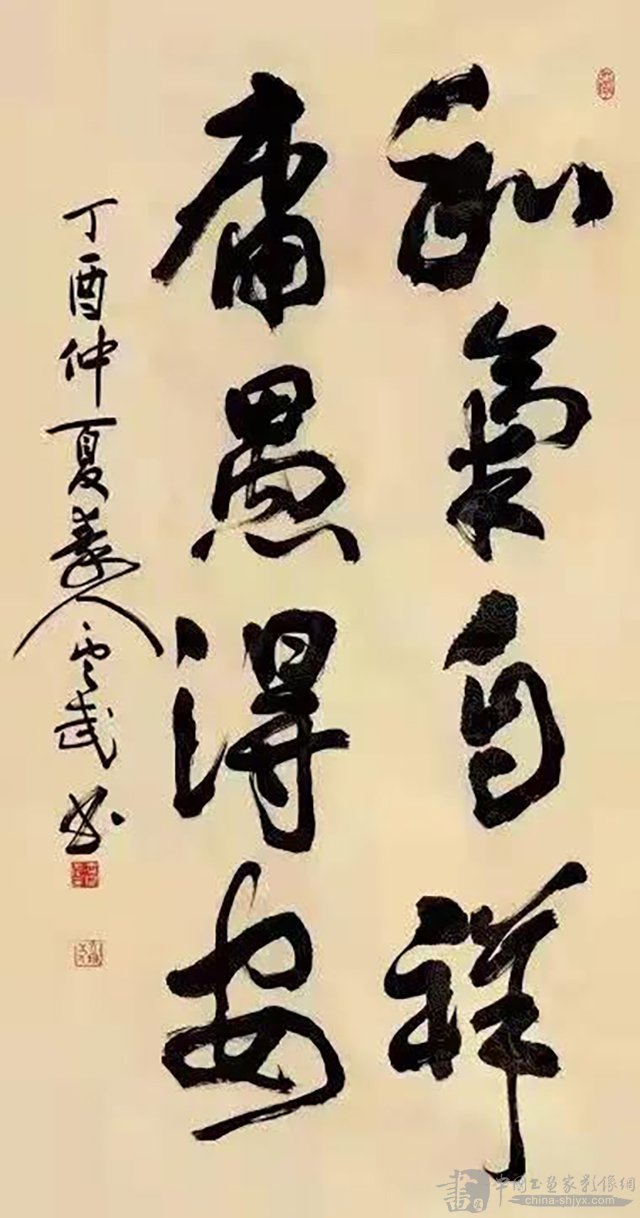 和氣自祥
庸愚得安
丁酉仲夏義人雲武书
書 中國书画家影像網
china-shjyx.com